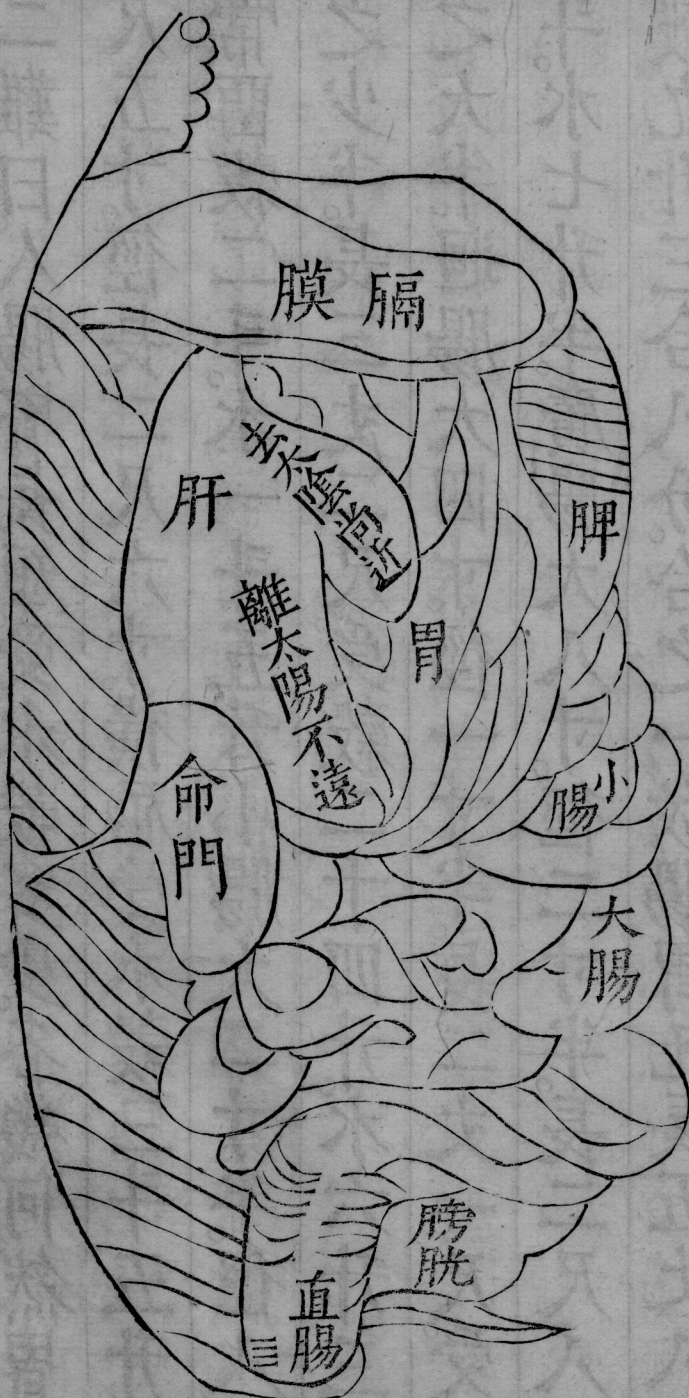 膈膜
脾
去太陰尚近
肝
離太陽不遠
胃
小腸
命門
大腸
膀胱
直腸